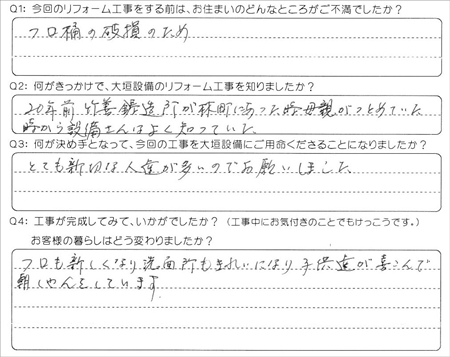 Q1: 今回のリフォーム工事をする前は、お住まいのどんなところがご不満でしたか？
フロ桶の破損のため
Q2: 何がきっかけで、大垣設備のリフォーム工事を知りましたか？
20年前 竹善鋳造所が林町にあった時母親がつとめていた
時から設備さんはよく知っていた
Q3: 何が決め手となって、今回の工事を大垣設備にご用命くださることになりましたか？
とても親切な人達が多いのでお願いしました
Q4: 工事が完成してみて、いかがでしたか？（工事中にお気付きのことでもけっこうです。）
お客様の暮らしはどう変わりましたか？
フロも新しくなり洗面所もきれいになり子供達が喜こんで
朝しゃんをしています